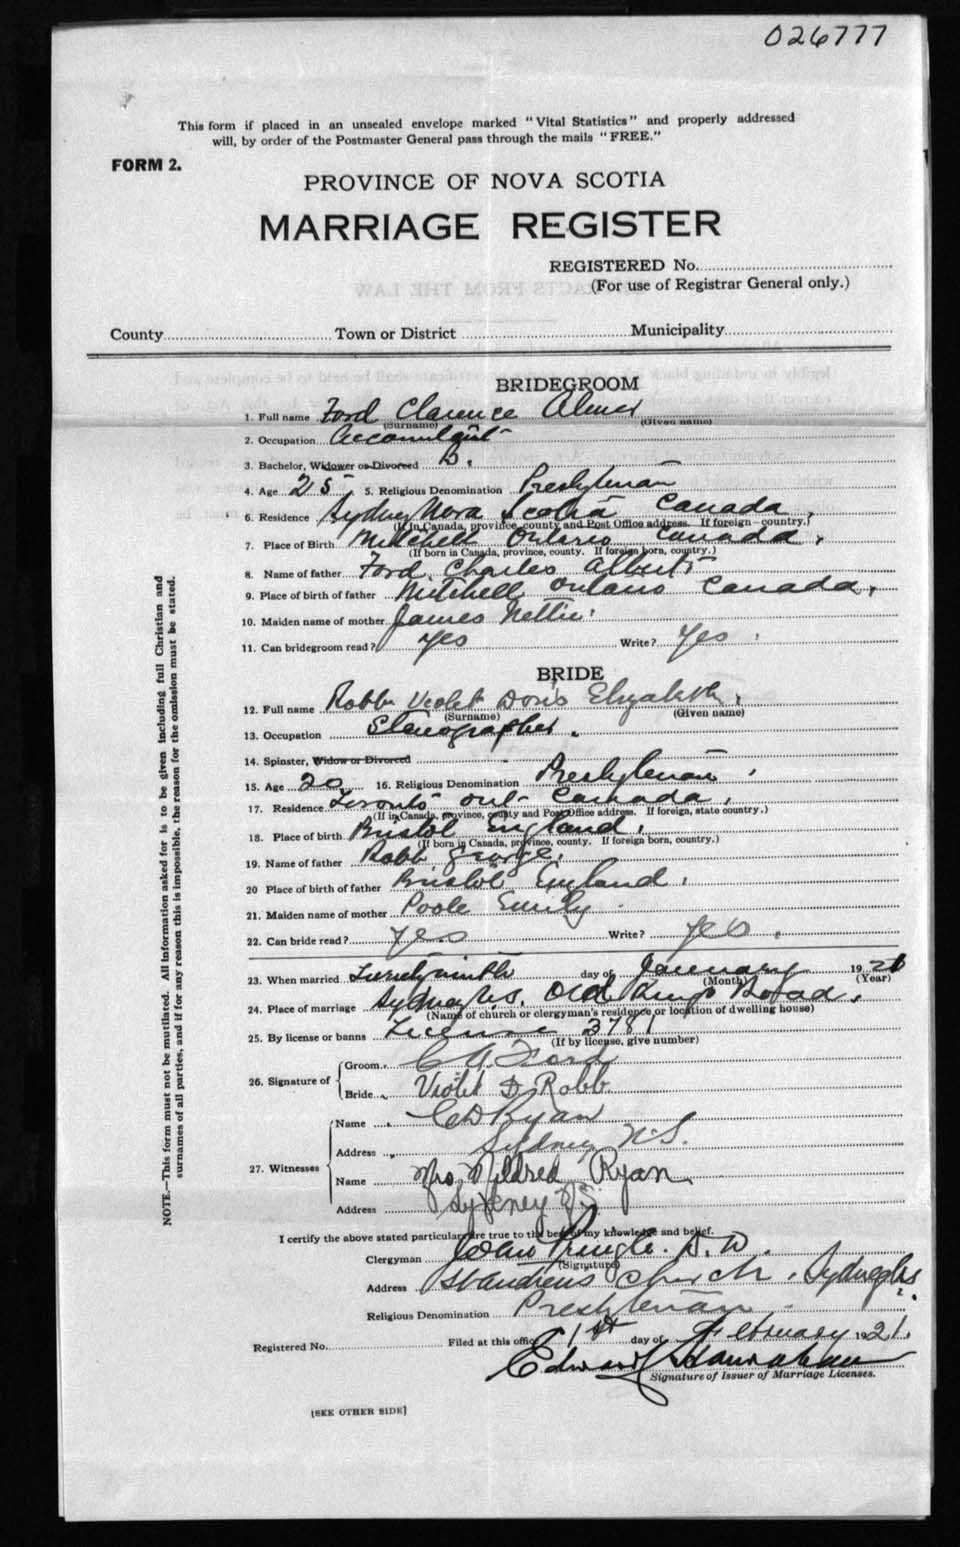 026777
This form if placed in an unsealed envelope marked "Vital Statistics" and properly addressed
will, by order of the Postmaster General pass through the mails "FREE."
FORM 2.
PROVINCE OF NOVA SCOTIA
MARRIAGE REGISTER
REGISTERED No.
(For use of Registrar General only.)
County Town or District Municipality
BRIDEGROOM
1. Full name Ford Clarence Almer
(Surname) (Given name)
2. Occupation Accountant
3. Bachelor, Widower or Divorced B.
4. Age 25 5. Religious Denomination Presbyterian
6. Residence Sydney Nova Scotia Canada
(If in Canada, province, county and Post Office address. If foreign-country.)
7. Place of Birth Mitchell Ontario Canada.
(If born in Canada, province, county. If foreign born, country.)
8. Name of father Ford Charles Albert
9. Place of birth of father Mitchell Ontario Canada.
10. Maiden name of mother James Nellie
11. Can bridegroom read? Yes Write? Yes
BRIDE
12. Full name Robb Violet Doris Elizabeth.
(Surname) (Given name)
13. Occupation Stenographer.
14. Spinster, Widow or Divorced
15. Age 20 16. Religious Denomination Presbyterian
17. Residence Toronto Ont Canada.
(If in Canada, province, county and Post Office address. If foreign, state country.)
18. Place of birth Bristol England.
(If born in Canada, province, county. If foreign born, country.)
19. Name of father Robb George.
20 Place of birth of father Bristol England.
21. Maiden name of mother Poole Emily
22. Can bride read? Yes Write? Yes.
23. When married Twenty ninth day of January 1921
(Month) (Year)
24. Place of marriage Sydney N.S. Old Kings Road.
(Name of church or clergyman's residence or location of dwelling house)
25. By license or banns License 3781
(If by license, give number)
26. Signature of
Groom C A Ford
Bride Violet D. Robb
27. Witnesses
Name C D Ryan
Address Sydney N.S.
Name Mrs. Mildred Ryan.
Address Sydney N.S.
I certify the above stated particulars are true to the best of my knowledge and belief.
Clergyman John Pringle. D.D.
(Signature)
Address St Andrews Church. Sydney N.S.
Religious Denomination Presbyterian
Registered No. Filed at this office 1st day of February 1921.
Edward Hanrahan
Signature of Issuer of Marriage Licenses.
[SEE OTHER SIDE]
NOTE.—This form must not be mutilated. All information asked for is to be given including full Christian and
surnames of all parties, and if for any reason this is impossible, the reason for the omission must be stated.